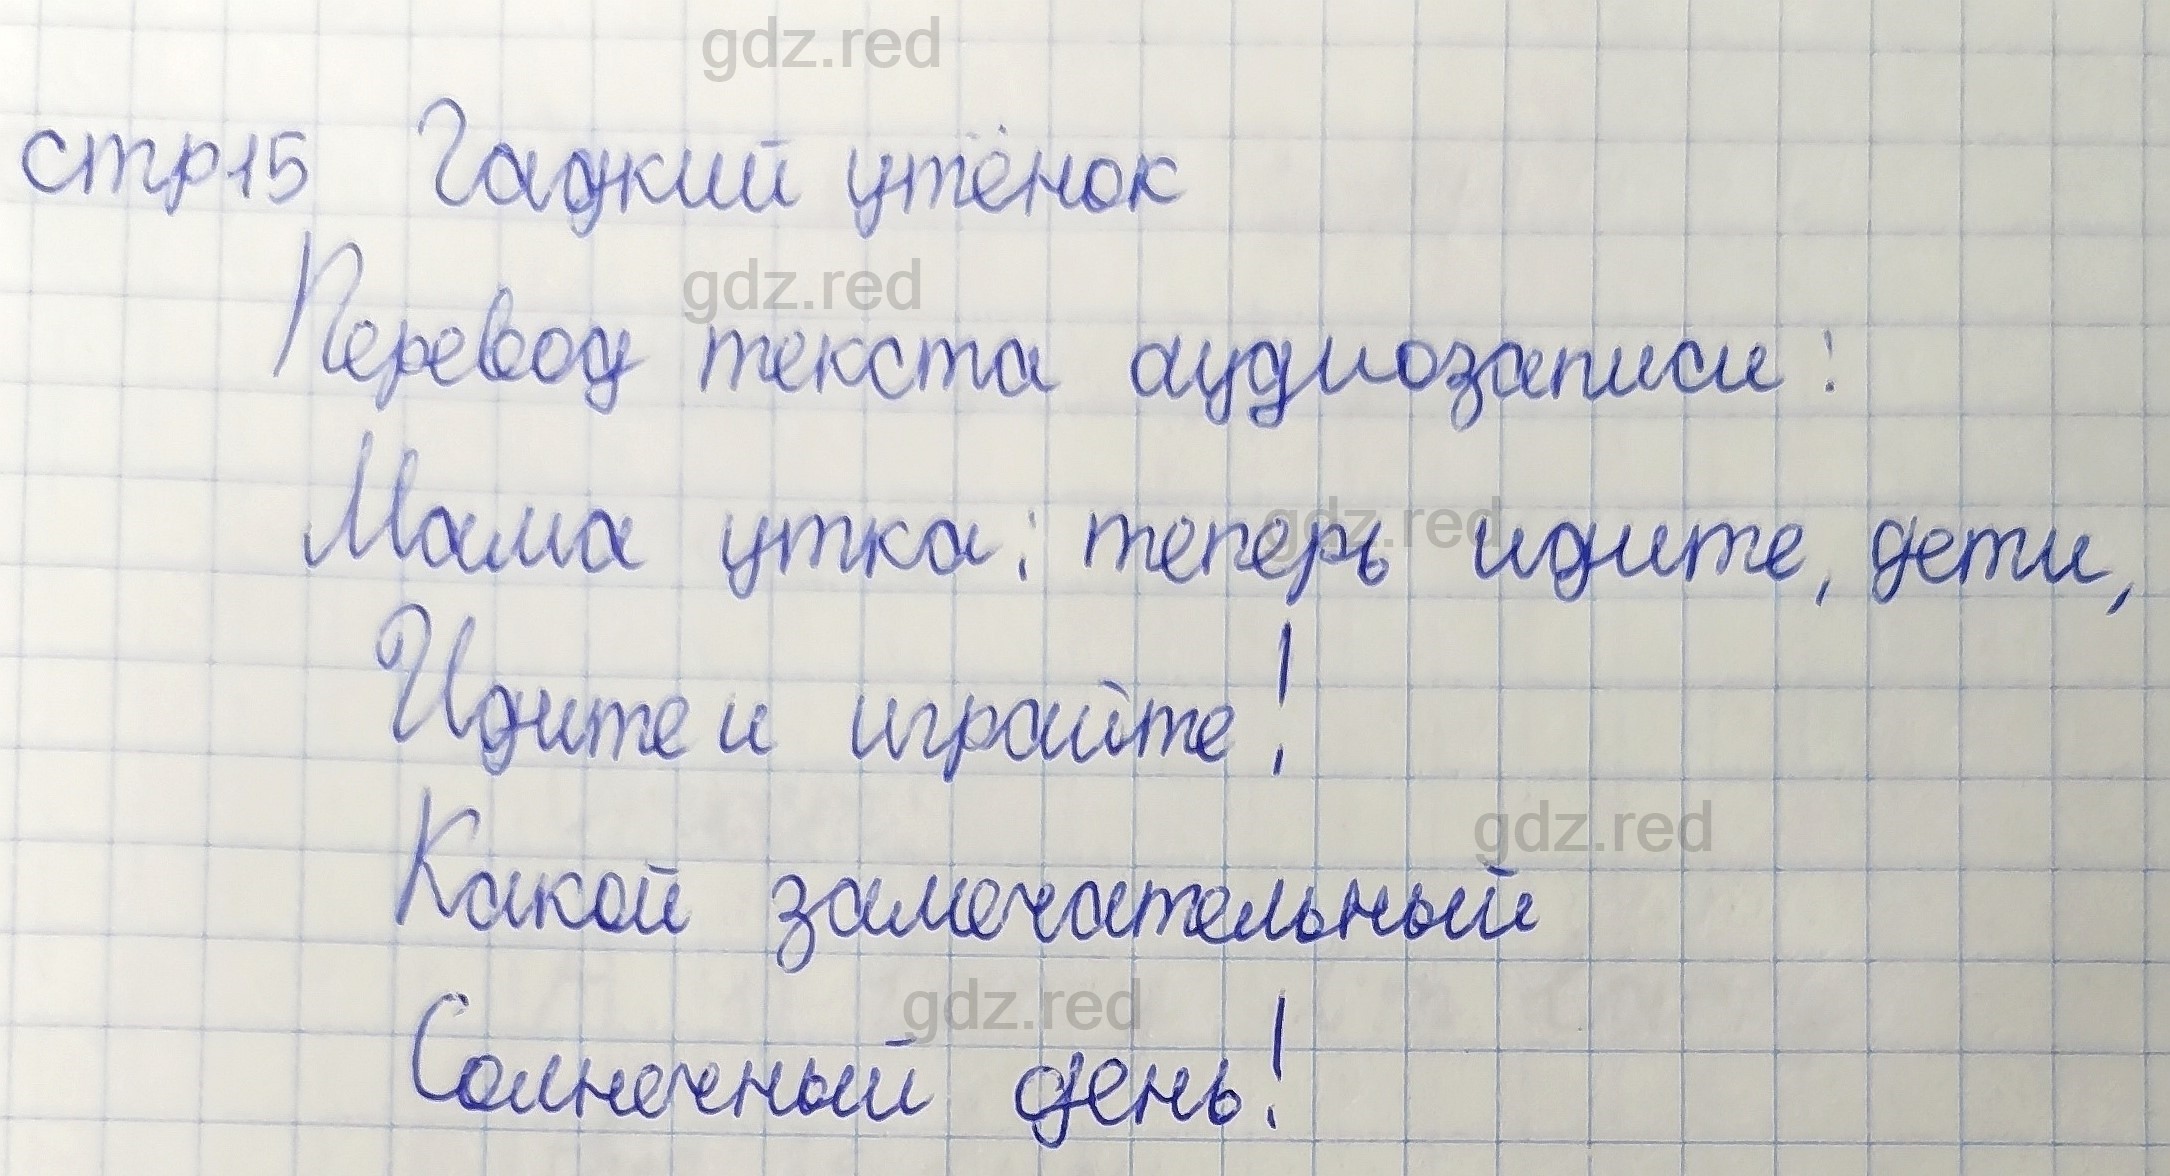 gdz.red
стр 15 Гадкий утёнок
gdz.red
Перевод текста аудиозаписи:
Мама утка: теперь идите, дети,
gdz.red
Идите и играйте!
gdz.red
Какой замечательный
gdz.red
Солнечный день!